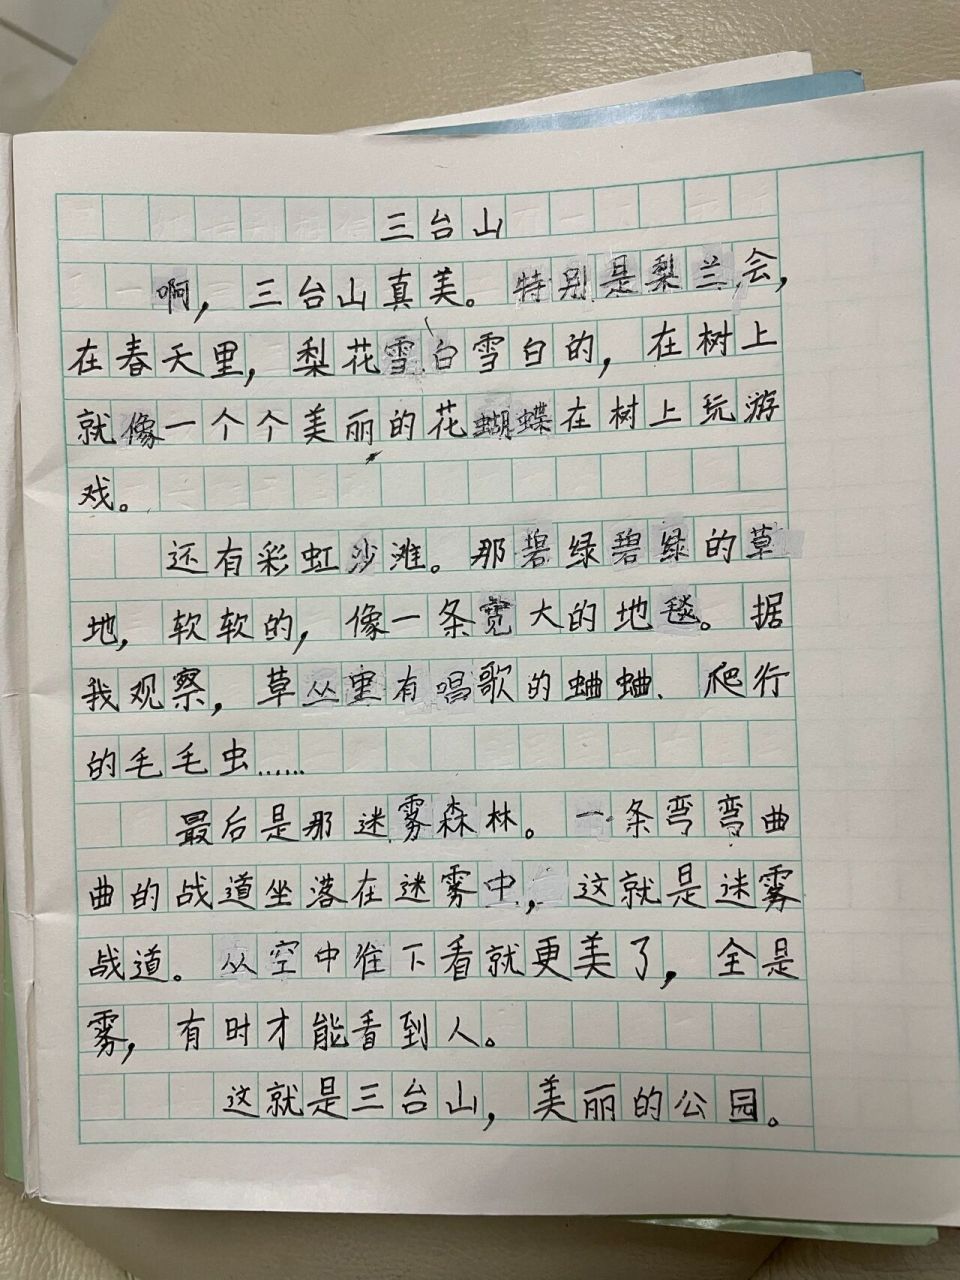 三台山
啊，三台山真美。特别是梨兰会，
在春天里，梨花雪白雪白的，在树上
就像一个个美丽的花蝴蝶在树上玩游
戏。
还有彩虹沙滩。那碧绿碧绿的草
地，软软的，像一条宽大的地毯。据
我观察，草丛里有唱歌的蛐蛐、爬行
的毛毛虫……
最后是那迷雾森林。一条弯弯曲
曲的战道坐落在迷雾中，这就是迷雾
战道。从空中往下看就更美了，全是
雾，有时才能看到人。
这就是三台山，美丽的公园。